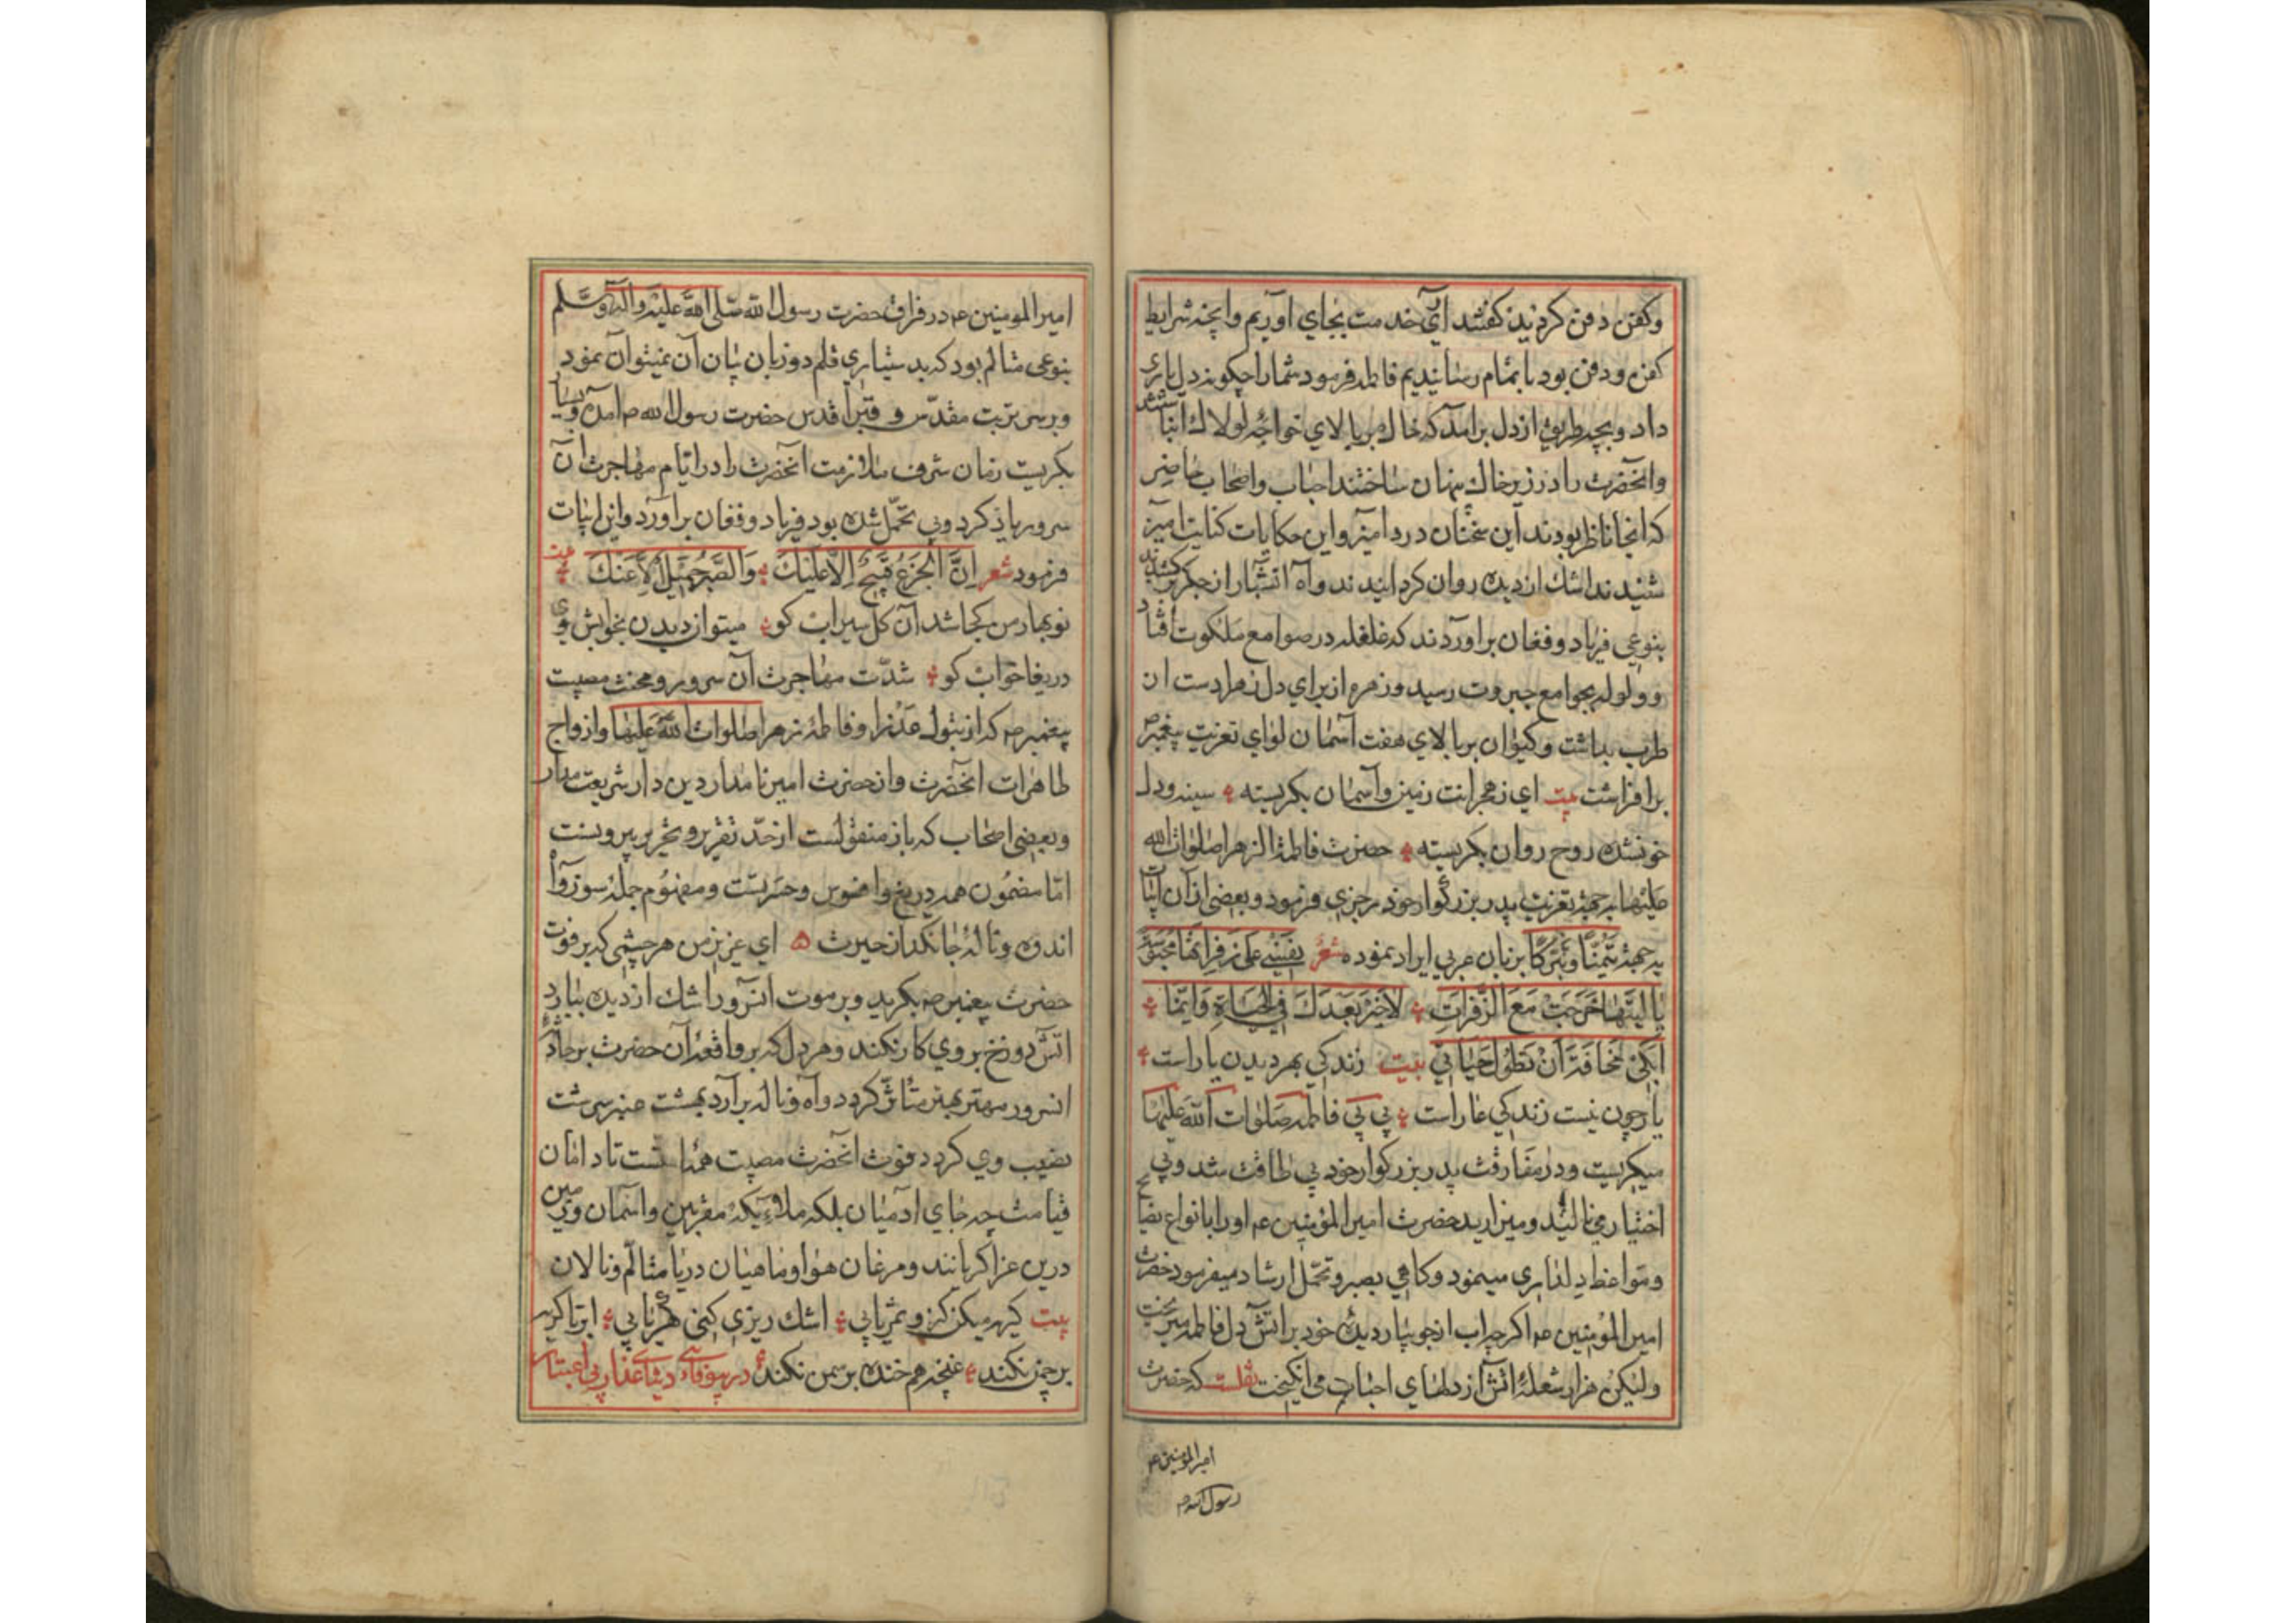 وکفن دفن کردید کفتند آری خدمت بجای آوریم وانچه شرایط
کفن ودفن بود باتمام رسانیدیم فاطمه فرمود شمارا چکونه دل یاری
داد وبچه طریق از دل برآمد که خاک بر بالای خواجه لولاک
وانحضرت را در زیر خاک پنهان ساختند احباب واصحاب حاضر
که انجا ناظر بودند این سخنان درد آمیز واین حکایات کنایت آمیز
شنیدند اشک از دیده روان کردانیدند وآه آتشبار از جکر کشیدند
بنوعی فریاد وفغان برآوردند که غلغله در صوامع ملکوت افتاد
وولوله بجوامع جبروت رسید وزهره از برای دل زهرا دست از
طرب بداشت وکیوان بر بالای هفت آسمان لوای تعزیت پیغمبر ص
برافراشت بیت ای ز هجرانت زمین وآسمان بکریسته سینه ودل
خونشده روح روان بکریسته حضرت فاطمة الزهرا صلوات الله
علیها بجهة تعزیت پدر بزرکوار خود رجزی فرمود وبعضی از آن ابیات
بجهة تیمّنًا وتبرّکًا بزبان عربی ایراد نموده شعر نفسی علی زفراتها محبوسة
یا لیتها خرجت مع الزفرات لاخیر بعدک فی الحیاة وانما
ابکی مخافة ان تطول حیاتی بیت زندکی بهر دیدن یار است
یار چون نیست زندکی عار است بی بی فاطمه صلوات الله علیها
میکریست ودر مفارقت پدر بزرکوار خود بی طاقت شد وبی
اختیار می نالید ومیزارید حضرت امیر المؤمنین ع اورا بانواع نصایح
ومواعظ دلداری مینمود وکاهی بصبر وتحمل ارشاد میفرمود حضرت
امیر المؤمنین ع اکرچه آب از جویبار دیده خود بر آتش دل فاطمه میریخت
ولیکن هزار شعلۀ آتش از دلهای احباب می انکیخت نقلست که حضرت
امیر المؤمنین ع
رسول الله ص
امیر المومنین ع در فراق حضرت رسول الله صلی الله علیه وآله وسلم
بنوعی متالم بود که بدستیاری قلم دو زبان بیان آن نمیتوان نمود
وبر سر تربت مقدّس وقبر اقدس حضرت رسول الله ص آمد وبسیار
بکریست زمان شرف ملازمت انحضرت را در ایّام مهاجرت آن
سرور یاد کرد وبی تحمّل شده بود فریاد وفغان برآورد واین ابیات
فرمود شعر انّ الجزع قبیح الّا علیک والصبر جمیل الّا عنک بیت
نوبهار من کجا شد آن کل سیراب کو میتوان دیدن بخوابش وی
دریغا خواب کو شدّت مهاجرت آن سرور ومحنت مصیبت
پیغمبر ص که از بتول عذرا وفاطمۀ زهرا صلوات الله علیها وازواج
طاهرات انحضرت واز حضرت امیر نامدار دین دار شریعت مدار
وبعضی اصحاب کبار منقولست از حدّ تقریر وتحریر بیرونست
امّا مضمون همه دریغ وافسوس وحسرتست ومفهوم جمله سوز وآه
اندوه ونالۀ جانکداز حیرت ه ای عزیز من هر چشمی که بر فوت
حضرت پیغمبر ص بکرید وبر موت انسرور اشک از دیده ببارد
آتش دوزخ بروی کار نکند وهر دل که بر واقعۀ آن حضرت بر
انسرور مهتر بهتر متاثر کردد وآه وناله برآرد بهشت عنبر سرشت
نصیب وی کردد فوت انحضرت مصیبت همه است تا دامان
قیامت چه جای آدمیان بلکه ملائیکه مقربین واسمان وزمین
درین عزا کریانند ومرغان هوا وماهیان دریا متالّم ونالان
بیت کریه میکن کزو ثمر یابی اشک ریزی کنی کهر یابی ابر تا کریه
بر چمن نکند غنچه هم خنده بر سمن نکند در بیوفائی دنیای غدار بی اعتبار